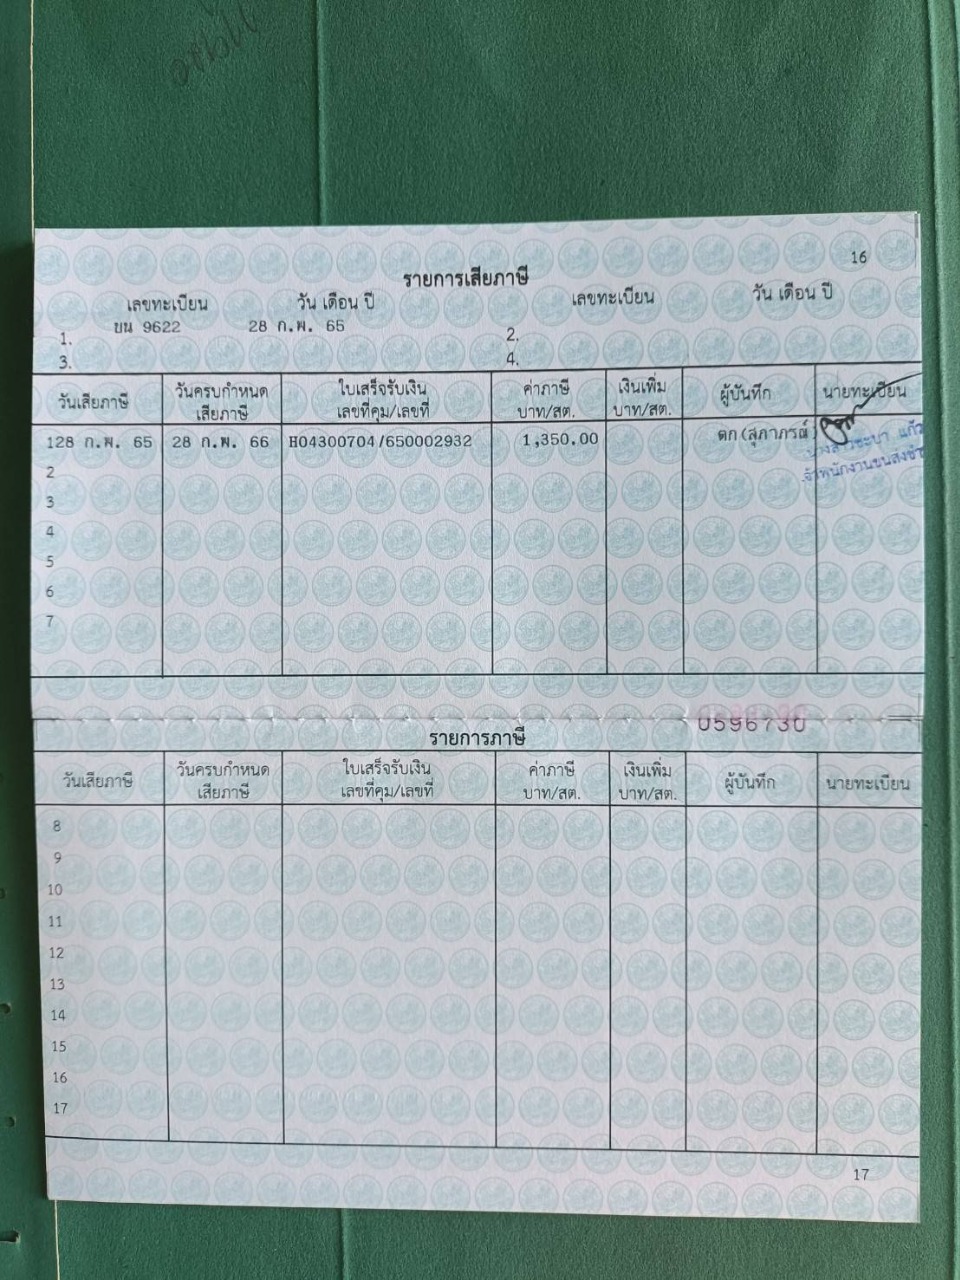 16
รายการเสียภาษี
เลขทะเบียน วัน เดือน ปี เลขทะเบียน วัน เดือน ปี
1. ขน 9622 28 ก.พ. 65 2.
3. 4.
วันเสียภาษี วันครบกำหนด ใบเสร็จรับเงิน ค่าภาษี เงินเพิ่ม ผู้บันทึก นายทะเบียน
เสียภาษี เลขที่คุม/เลขที่ บาท/สต. บาท/สต.
128 ก.พ. 65 28 ก.พ. 66 H04300704/650002932 1,350.00 ตก(สุภาภรณ์)
แก้ว
2
3
4
5
6
7
0596730
รายการภาษี
วันเสียภาษี วันครบกำหนด ใบเสร็จรับเงิน ค่าภาษี เงินเพิ่ม ผู้บันทึก นายทะเบียน
เสียภาษี เลขที่คุม/เลขที่ บาท/สต. บาท/สต.
8
9
10
11
12
13
14
15
16
17
17